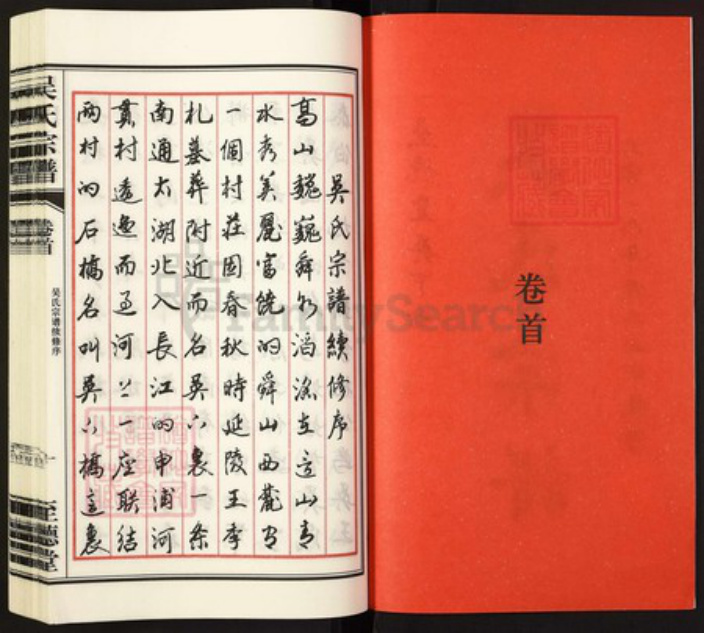 卷首
吴氏宗譜續修序
高山巍巍舜水滔滔在這山青
水秀美麗富饒的舜山西麓有
一個村莊因春秋時延陵王季
札墓葬附近而名吴八裏一条
南通太湖北入長江的申浦河
貫村逶迤而过河上一座联結
两村的石橋名叫吴八橋這裏
吴氏宗譜
卷首
吴氏宗谱续修序
一
至德堂
FamilySearch